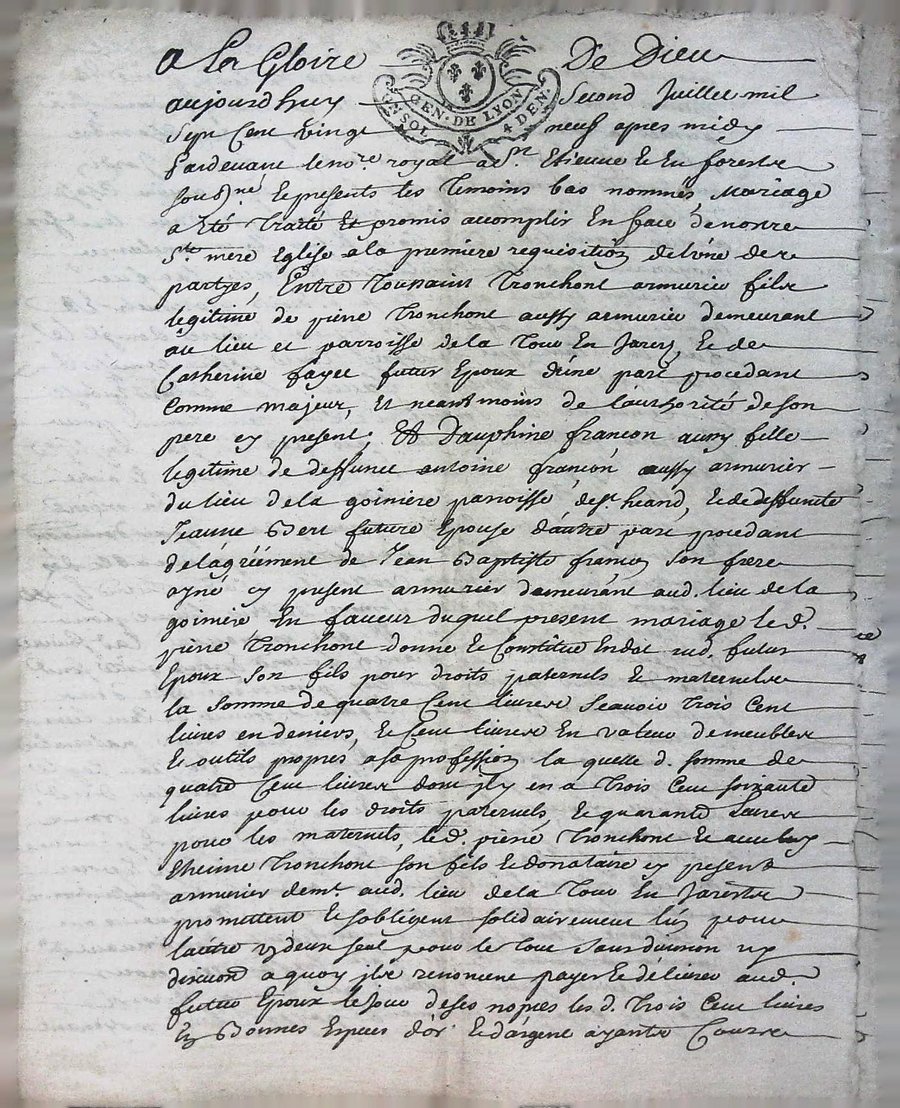 A La Gloire De Dieu
GEN. DE LYON
UN SOL 4 DEN.
aujourdhuy second Juillet mil
sept Cent vingt neuf apres midy
Pardevant le no.re royal a St Etienne de En forests
sous.né Et presents les temoins bas nommés, Mariage
a Eté traité Et promis accomplir En face de nostre
Ste mere Eglise a la premiere requisition de lune des
partyes, Entre Toussaint Tronchont armurier fils
legitime de pierre Tronchont aussy armurier demeurant
au lieu et parroisse de la Tour En Jarez, Et de
Catherine fayee futur Epoux d'une part procedant
Comme majeur, Et neantmoins de l'authorité de son
pere cy present, Et Dauphine francon aussy fille
legitime de deffunct antoine francon aussy armurier
du lieu de la goimiere parroisse de St heand, Et de deffuncte
Jeanne Bert future Epouse d'autre part procedant
de lagréement de Jean Baptiste francon son frere
ayné cy present armurier demeurant aud. lieu de la
goimiere En faveur duquel present mariage le d.
pierre Tronchont donne Et Constitue En dot aud. futur
Epoux son fils pour droits paternels Et maternels
la somme de quatre Cent livres scavoir trois Cent
livres en deniers, Et Cent livres En valeur de meubles
Et outils propres a sa profession la quelle d. somme de
quatre Cent livres dont il y en a trois Cent soixante
livres pour les droits paternels, Et quarante livres
pour les maternels, le d. pierre Tronchont Et avec luy
Etienne Tronchont son fils Et donataire cy present
armurier demt. aud. lieu de la Tour En Jarests
promettent Et sobligent solidairement lun pour
lautre deux seul pour le tout sans division ny
discution a quoy ils renoncent payer Et délivrer aud.
futur Epoux le jour de ses nopces les d. trois Cent livres
En Bonnes Especes d'or Et d'argent ayants Cours